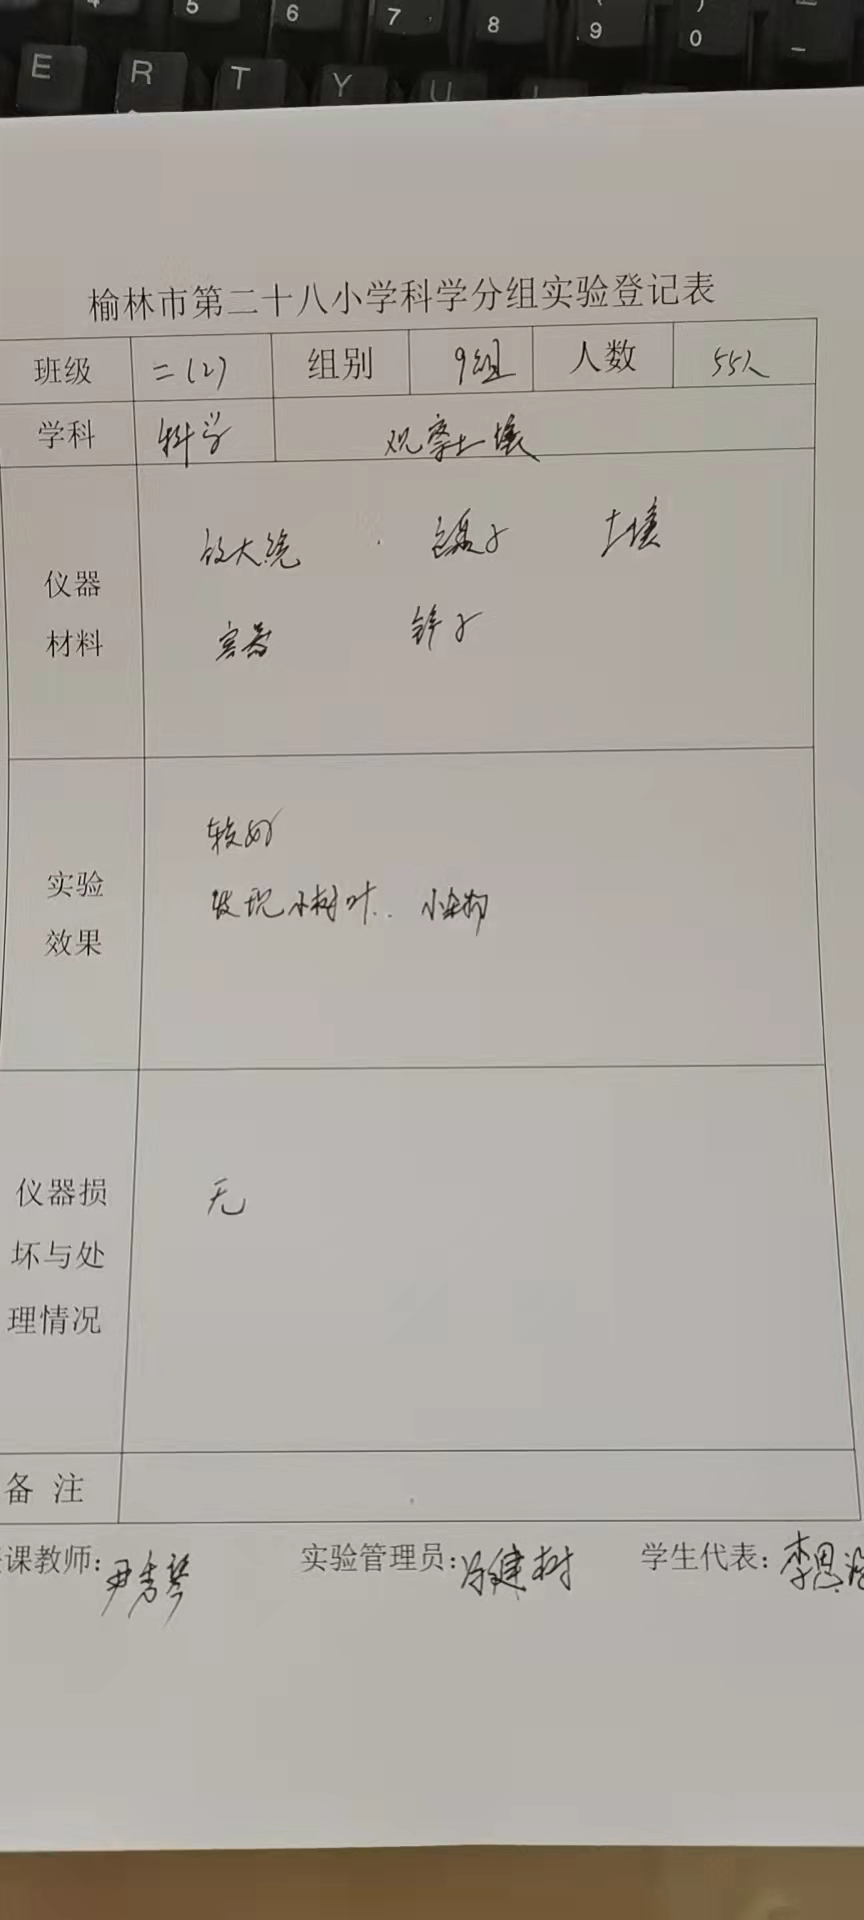 4 5 6 7 8 9 0
E R T Y U
榆林市第二十八小学科学分组实验登记表
班级 二(2) 组别 9组 人数 55人
学科 科学 观察土壤
仪器
材料
放大镜 镊子 土壤
容器 铲子
实验
效果
较好
发现小树叶..
仪器损
坏与处
理情况
无
备注
课教师: 尹秀琴 实验管理员: 建树 学生代表: 李思